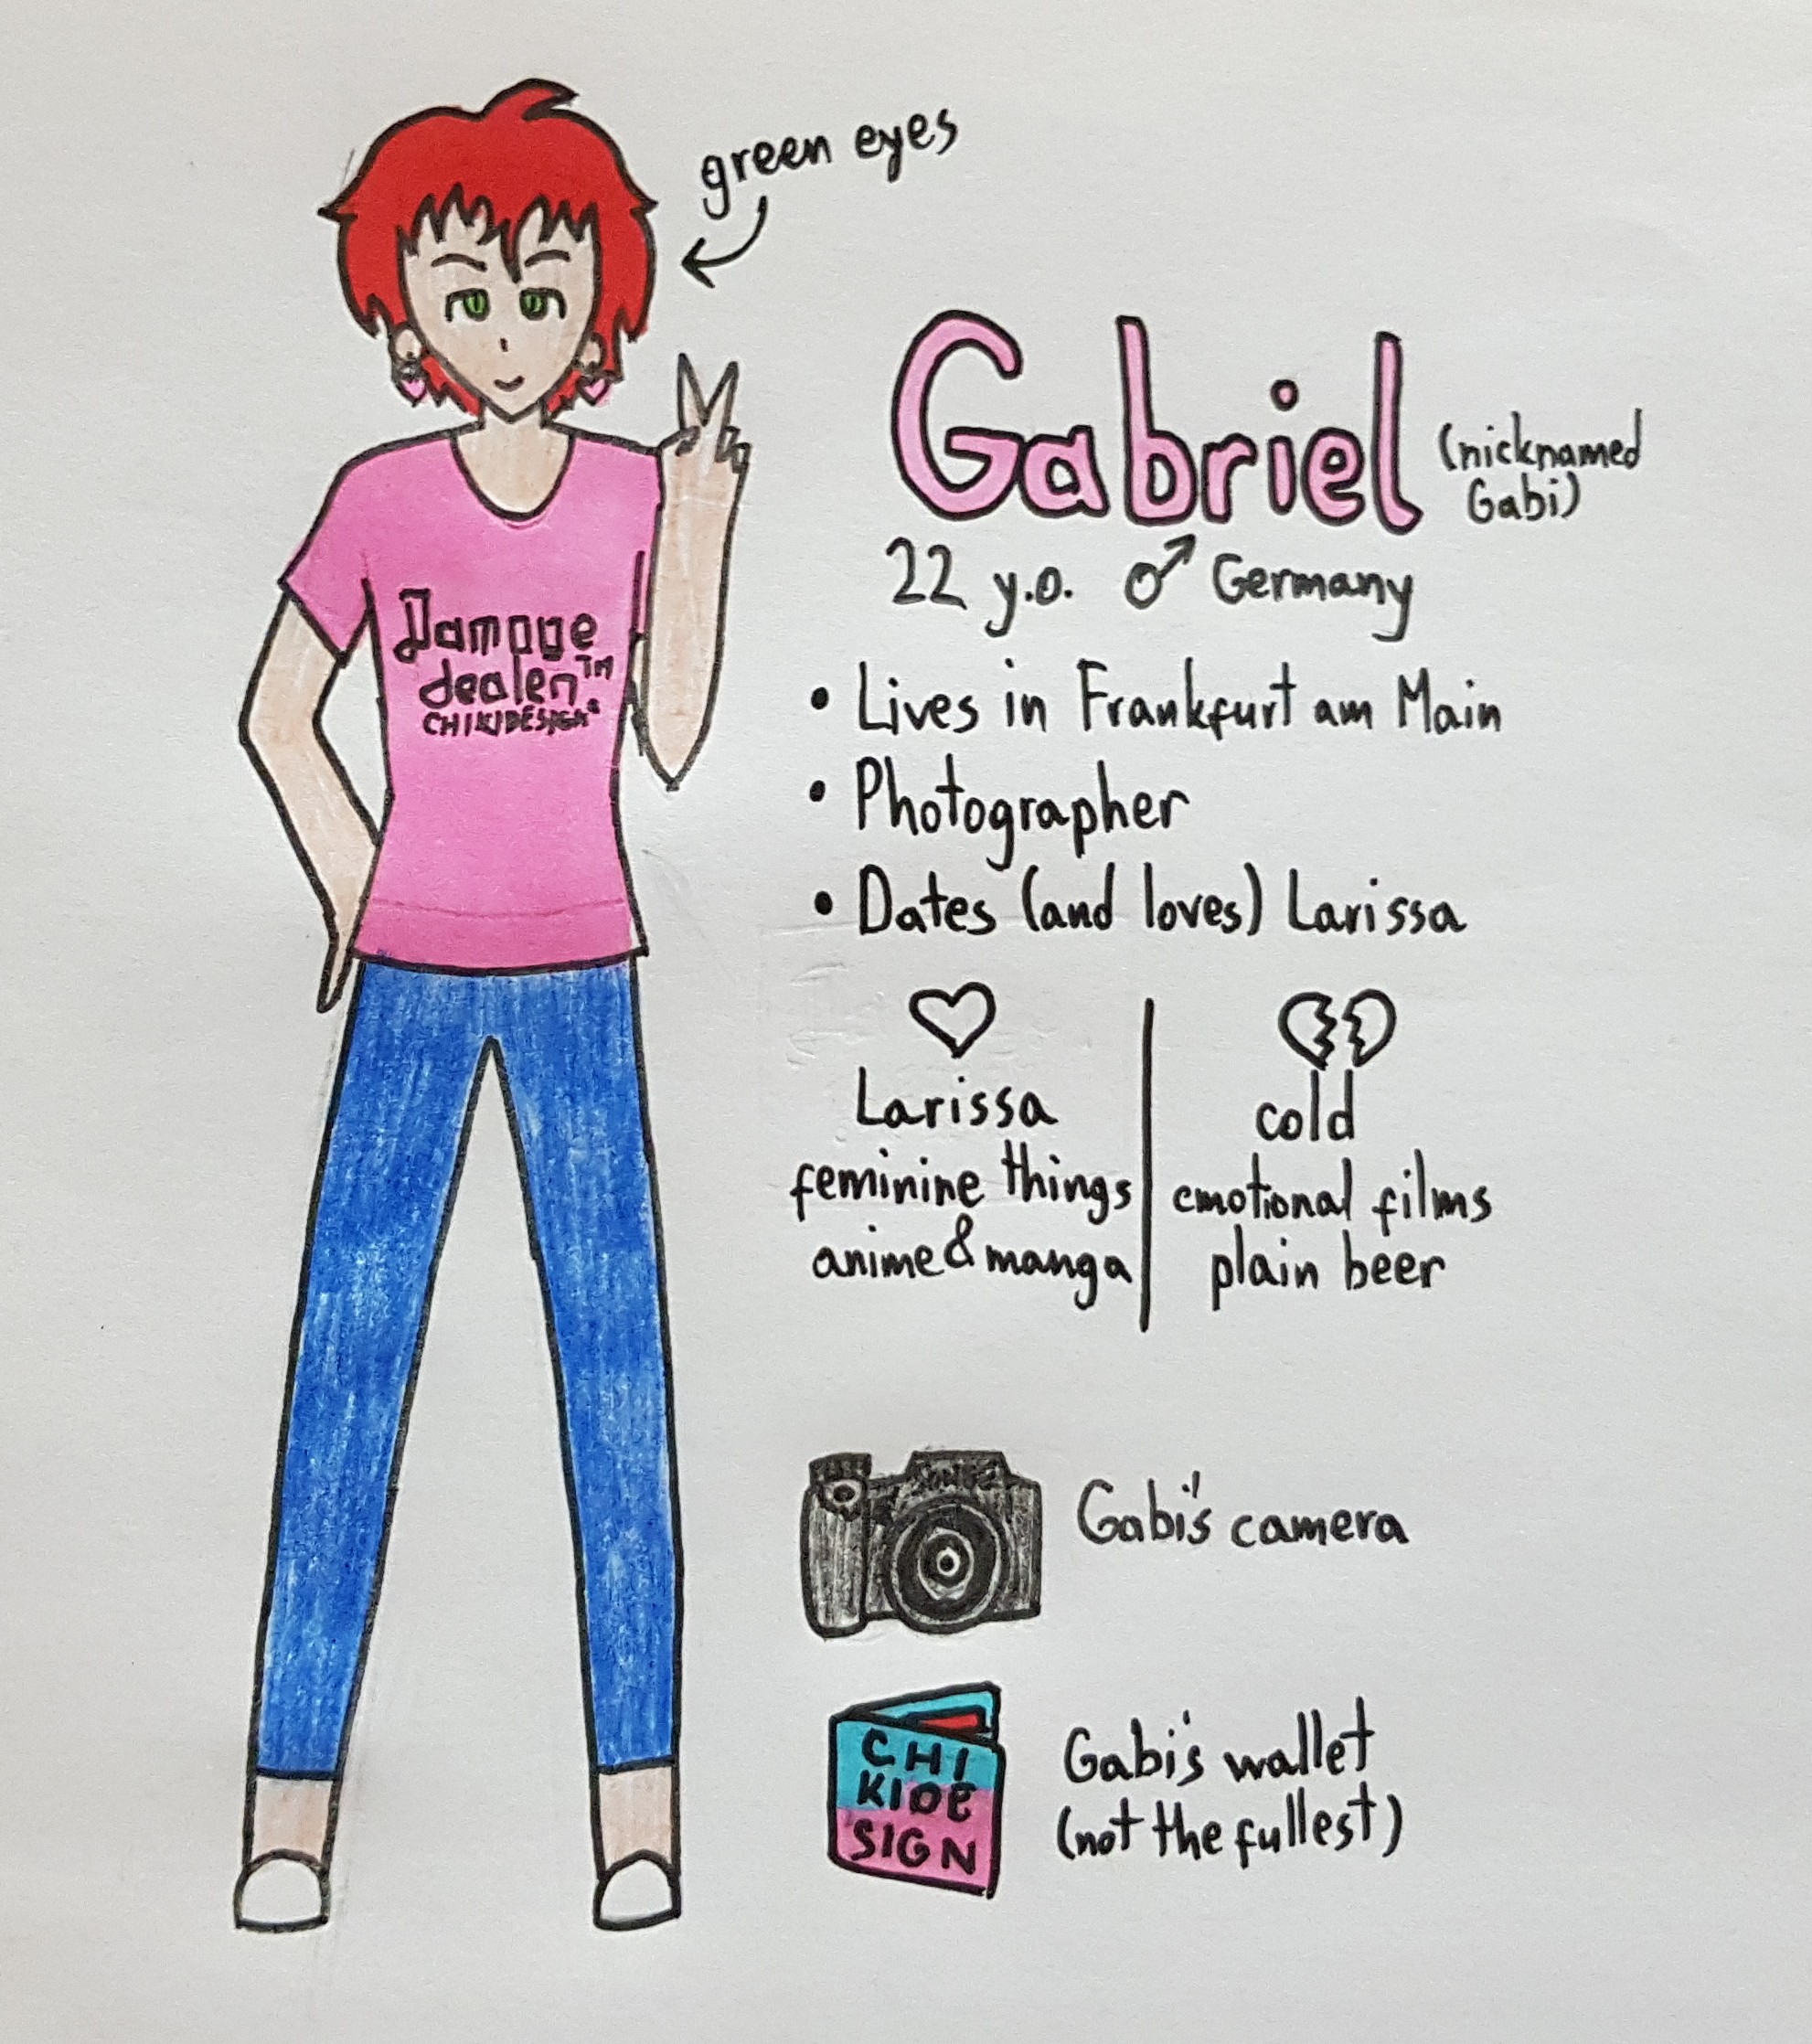 green eyes
Gabriel (nicknamed
Gabi)
22 y.o. ♂ Germany
• Lives in Frankfurt am Main
• Photographer
• Dates (and loves) Larissa
Larissa
feminine things
anime & manga
cold
emotional films
plain beer
Damage
dealer™
CHIKIDESIGN
Gabi's camera
CHI
KIDE
SIGN
Gabi's wallet
(not the fullest)